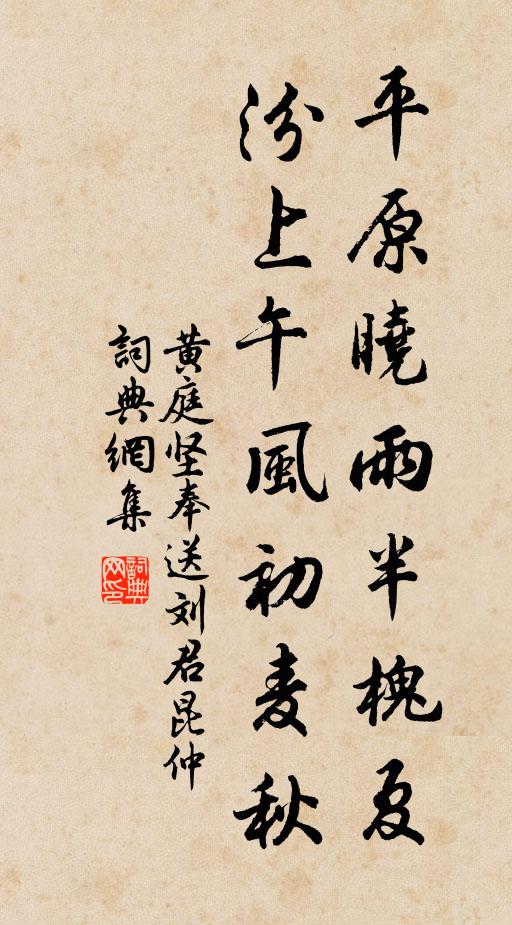 平原曉雨半槐夏
汾上午風初麦秋
黄庭坚奉送刘君昆仲
詞典網集
詞典网印